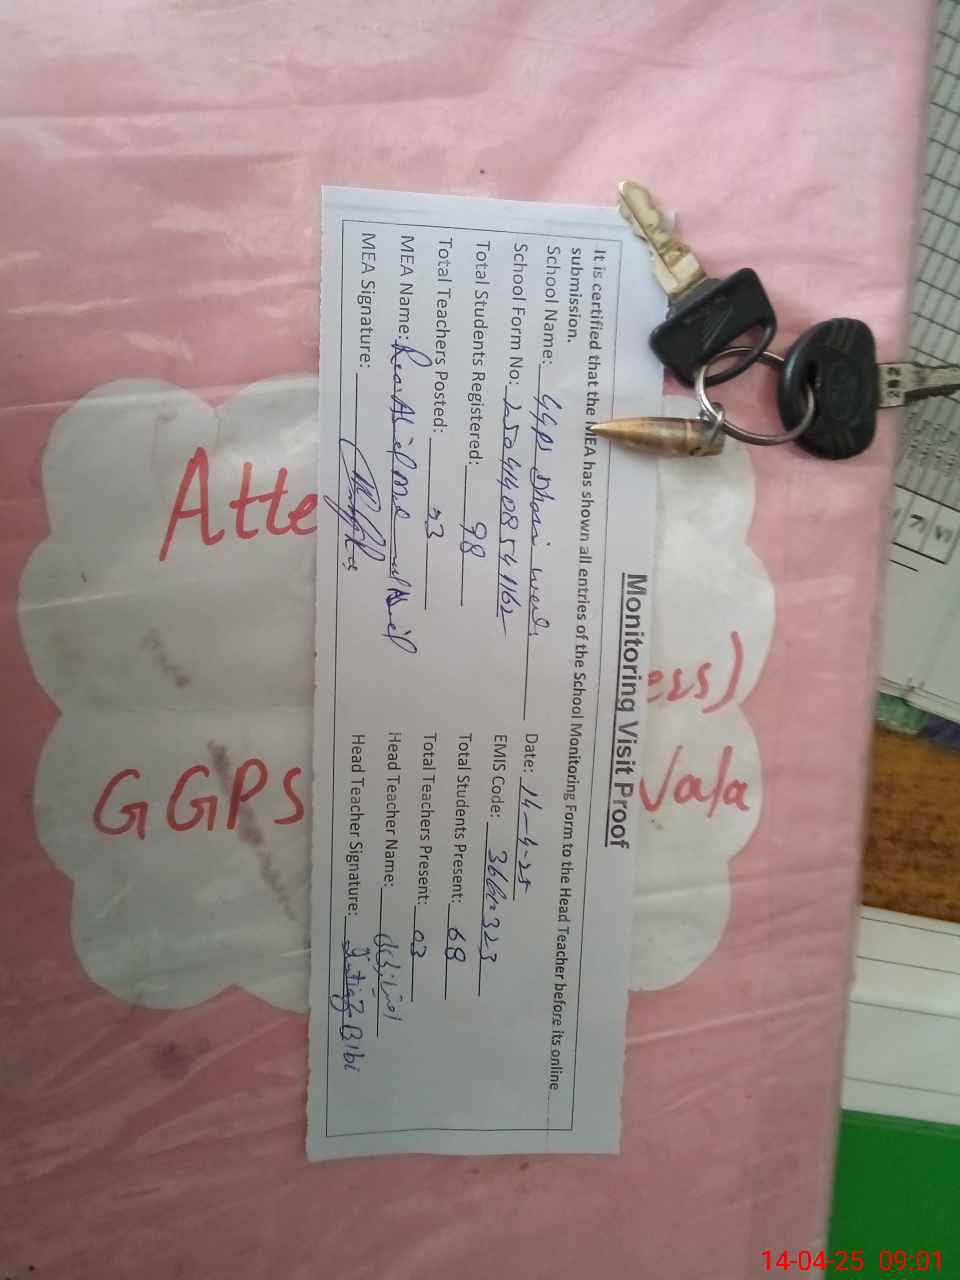 Monitoring Visit Proof
It is certified that the MEA has shown all entries of the School Monitoring Form to the Head Teacher before its online
submission.
School Name: GGPS Dhosi Date: 14-4-25
School Form No: EMIS Code:
Total Students Registered: 98 Total Students Present: 68
Total Teachers Posted: 03 Total Teachers Present: 03
MEA Name: Head Teacher Name:
MEA Signature: Head Teacher Signature: Imtiaz Bibi
Atte
ess)
GGPS
Wala
282
14-04-25 09:01